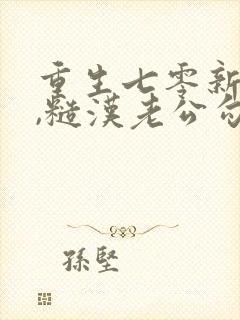 重生七零新
,糙漢老公勾
孫堅